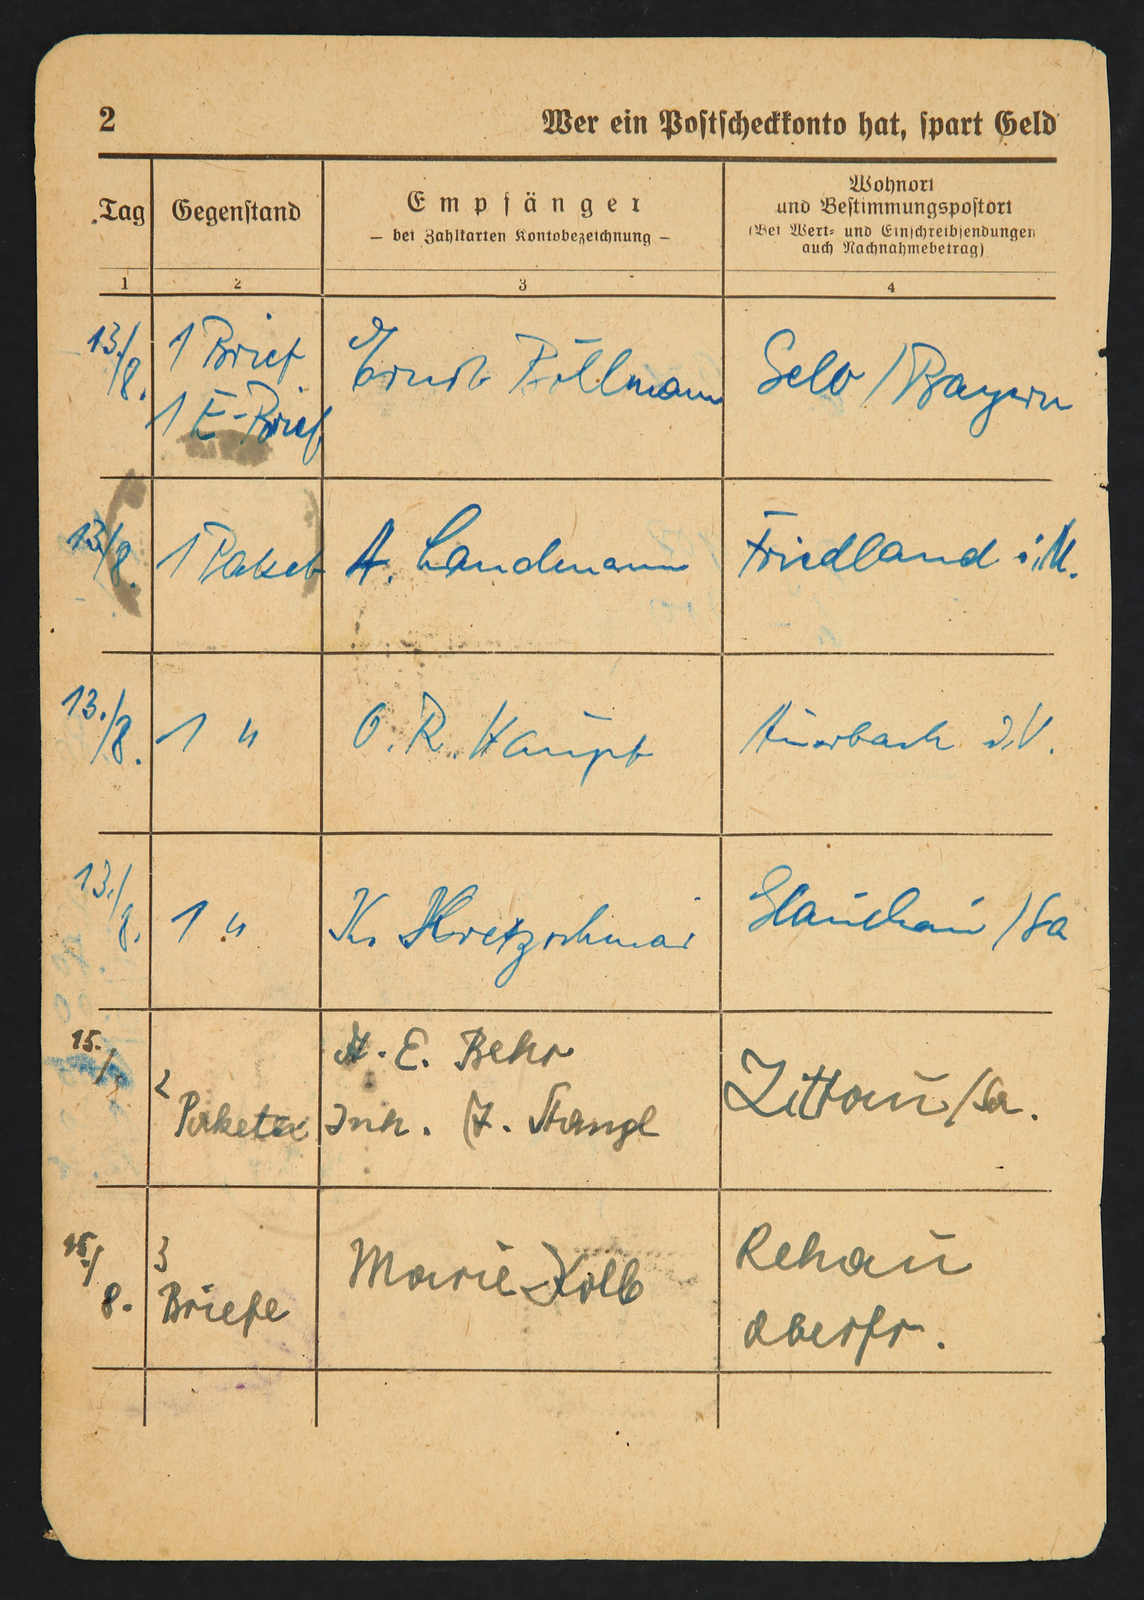 2
Wer ein Postscheckkonto hat, spart Geld
Tag
Gegenstand
Empfänger
– bei Zahlkarten Kontobezeichnung –
Wohnort
und Bestimmungspostort
(Bei Wert- und Einschreibsendungen
auch Nachnahmebetrag)
1
2
3
4
13./8.
1 Brief
1 E-Brief
Ernst Pöllmann
Selb / Bayern
13./8.
1 Paket
A. Landmann
Friedland i. M.
13./8.
1 "
O. R. Haupt
Auerbach i. V.
13./8.
1 "
K. Kretzschmar
Glauchau / Sa
15./
2
Pakete
A. E. Behr
Inh. Stangl
Zittau / Sa.
15./8.
3
Briefe
Marie Kolb
Rehau
Oberfr.